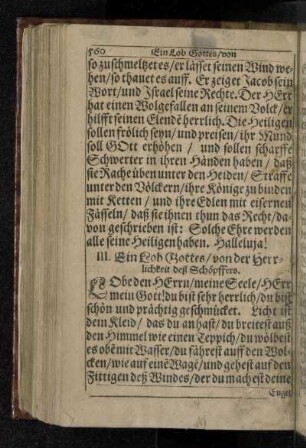 560 Ein Lob Gottes/von
so zuschmeltzet es/er lässet seinen Wind we-
hen/so thauet es auff. Er zeiget Jacob sein
Wort/und Israel seine Rechte. Der HErr
hat einen Wolgefallen an seinem Volck/er
hilfft seinen Elendē herrlich. Die Heiligen
sollen frölich seyn/und preisen/ihr Mund
soll GOtt erhöhen/und sollen scharffe
Schwerter in ihren Händen haben/daß
sie Rache üben unter den Heiden/Straffe
unter den Völckern/ihre Könige zu binden
mit Ketten/und ihre Edlen mit eisernen
Fässeln/daß sie ihnen thun das Recht/da-
von geschrieben ist: Solche Ehre werden
alle seine Heiligen haben. Halleluja!
III. Ein Lob Gottes/von der Herr-
lichkeit deß Schöpffers.
LObe den HErrn/meine Seele/HErr
mein Gott! du bist sehr herrlich/du bist
schön und prächtig geschmücket. Licht ist
dein Kleid/das du an hast/du breitest auß
den Himmel wie einen Teppich/du wölbest
es obē mit Wasser/du fährest auff den Wol-
cken/wie auf einē Wagē/und gehest auf den
Fittigen deß Windes/der du machest deine
Engel